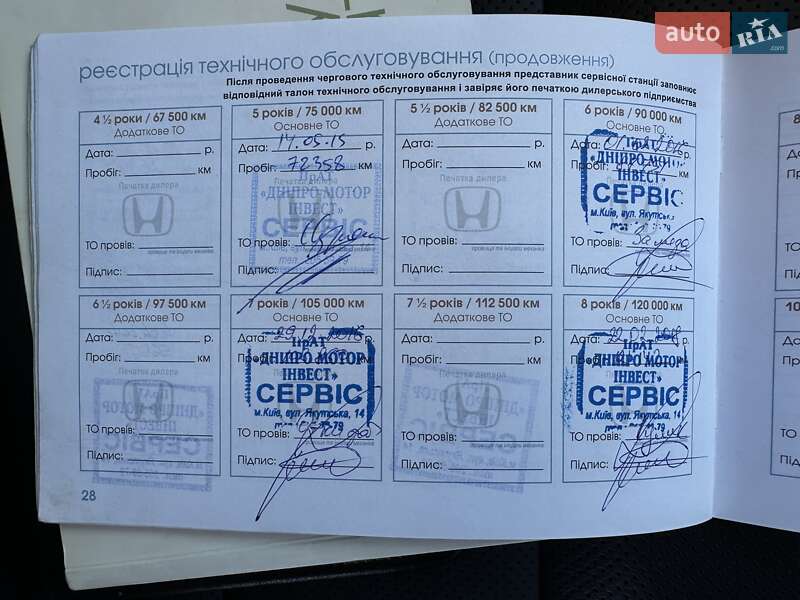 auto RIA .com
реєстрація технічного обслуговування (продовження)
Після проведення чергового технічного обслуговування представник сервісної станції заповнює
відповідний талон технічного обслуговування і завіряє його печаткою дилерського підприємства
4 ½ роки / 67 500 км
Додаткове ТО
Дата: р.
Пробіг: км
Печатка дилера
ТО провів:
прізвище та ініціали механіка
Підпис:
5 років / 75 000 км
Основне ТО
Дата: 14.05.15 р.
Пробіг: 72358 км
Печатка дилера
ПрАТ
«ДНІПРО МОТОР
ІНВЕСТ»
СЕРВІС
ТО провів:
Підпис:
5 ½ років / 82 500 км
Додаткове ТО
Дата: р.
Пробіг: км
Печатка дилера
ТО провів:
прізвище та ініціали механіка
Підпис:
6 років / 90 000 км
Основне ТО
Дата: р.
Пробіг: км
«ДНІПРО МОТОР
ІНВЕСТ»
СЕРВІС
м.Київ, вул. Якутська
ТО провів:
Підпис:
6 ½ років / 97 500 км
Додаткове ТО
Дата: р.
Пробіг: км
Печатка дилера
ТО провів:
Підпис:
7 років / 105 000 км
Основне ТО
Дата: р.
ПрАТ
«ДНІПРО МОТОР
ІНВЕСТ»
СЕРВІС
м.Київ, вул. Якутська, 14
ТО провів:
Підпис:
7 ½ років / 112 500 км
Додаткове ТО
Дата: р.
Пробіг: км
Печатка дилера
ТО провів:
прізвище та ініціали механіка
Підпис:
8 років / 120 000 км
Основне ТО
Дата: р.
ПрАТ
«ДНІПРО МОТОР
ІНВЕСТ»
СЕРВІС
м.Київ, вул. Якутська, 14
ТО провів:
Підпис:
28